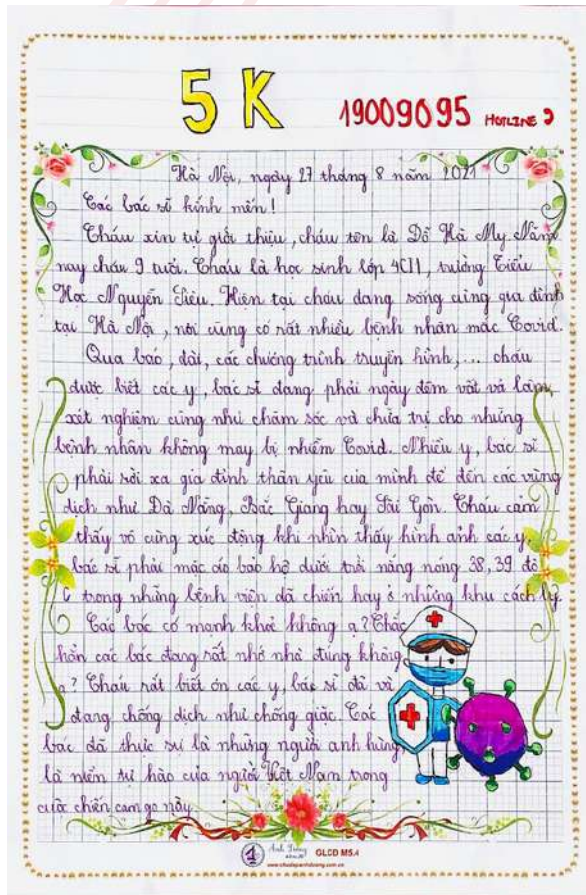 5 K
19009095 HOTLINE
Hà Nội, ngày 27 tháng 8 năm 2021
Các bác sĩ kính mến!
Cháu xin tự giới thiệu, cháu tên là Đỗ Hà My. Năm
nay cháu 9 tuổi. Cháu là học sinh lớp 4CI1, trường Tiểu
Học Nguyễn Siêu. Hiện tại cháu đang sống cùng gia đình
tại Hà Nội, nơi cũng có rất nhiều bệnh nhân mắc Covid.
Qua báo, đài, các chương trình truyền hình,... cháu
được biết các y, bác sĩ đang phải ngày đêm vất vả làm
xét nghiệm cũng như chăm sóc và chữa trị cho những
bệnh nhân không may bị nhiễm Covid. Nhiều y, bác sĩ
phải rời xa gia đình thân yêu của mình để đến các vùng
dịch như Đà Nẵng, Bắc Giang hay Sài Gòn. Cháu cảm
thấy vô cùng xúc động khi nhìn thấy hình ảnh các y,
bác sĩ phải mặc áo bảo hộ dưới trời nắng nóng 38, 39 độ
trong những bệnh viện dã chiến hay ở những khu cách ly.
Các bác có mạnh khoẻ không ạ? Chắc
hẳn các bác đang rất nhớ nhà đúng không
ạ? Cháu rất biết ơn các y, bác sĩ đã và
đang chống dịch như chống giặc. Các
bác đã thực sự là những người anh hùng,
là niềm tự hào của người Việt Nam trong
cuộc chiến cam go này.
Ánh Dương GLCD M5.4